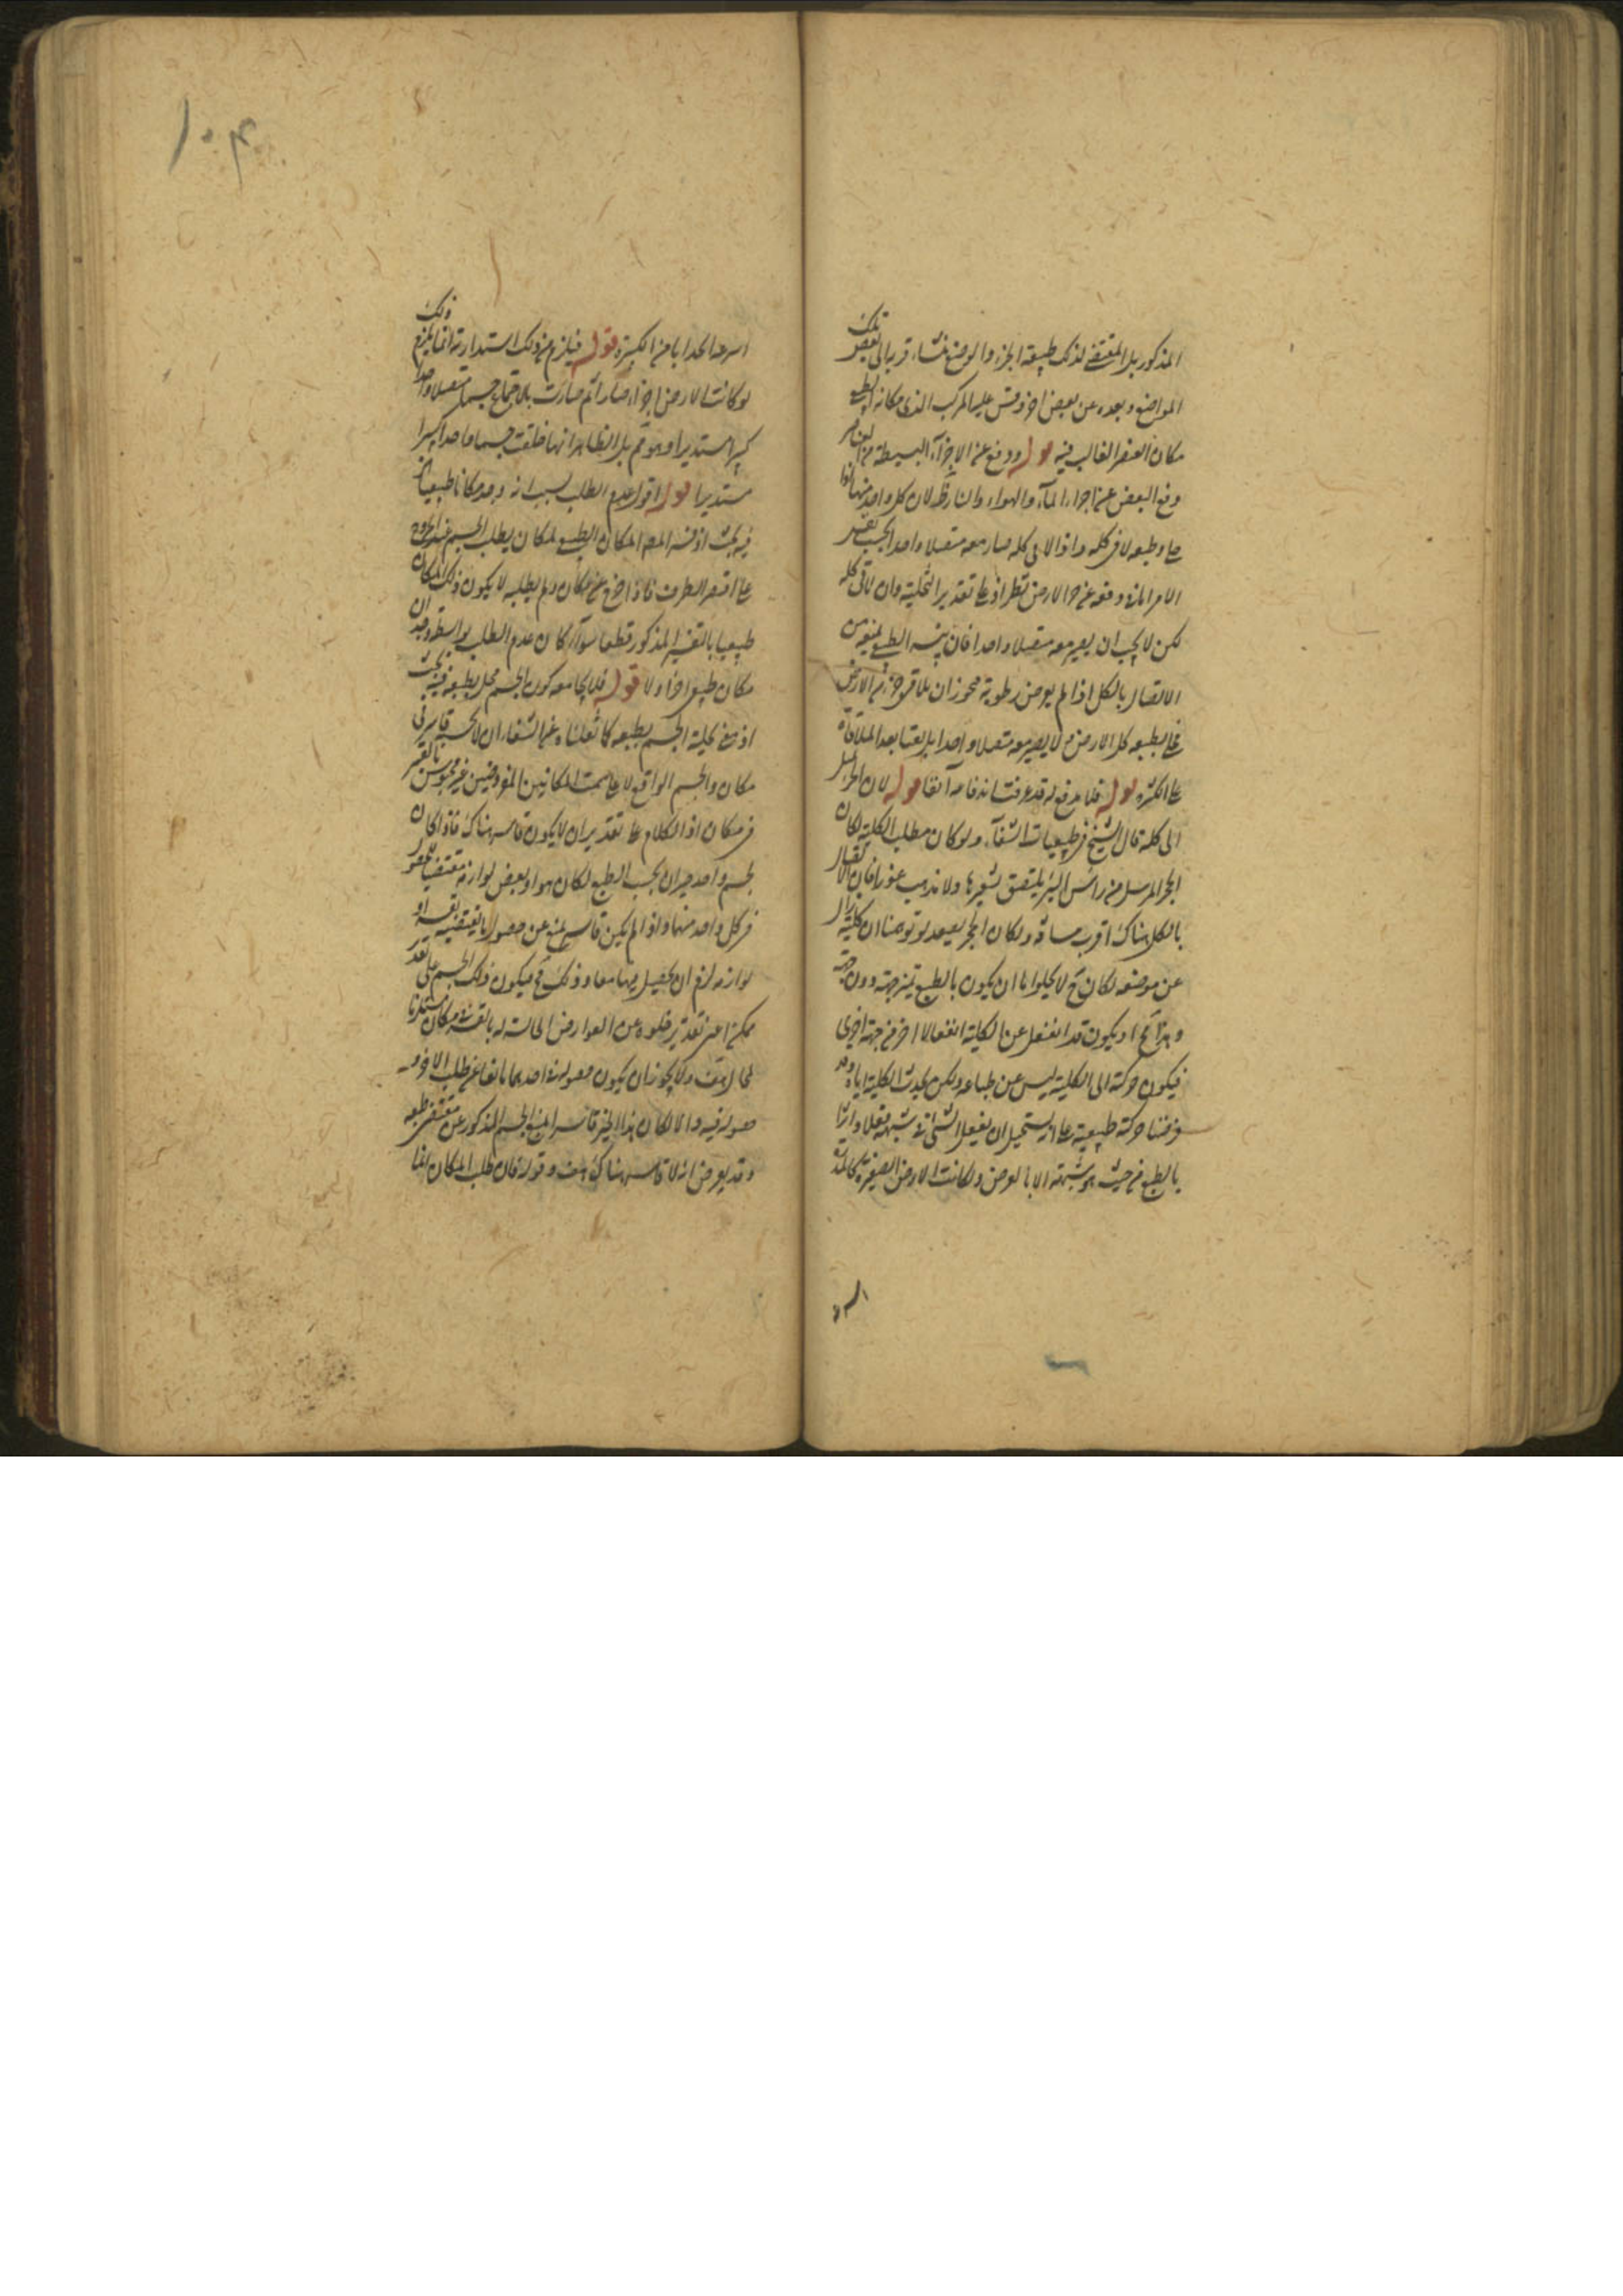 المذكور بل المقتضى لذلك طبيعة الجزء والوضع منشاء قربه الى بعض تلك
المواضع وبعده عن بعض اخر وقس عليه المركب الذى مكانه الطبيعى
مكان العنصر الغالب فيه قوله ودفع عن الاجزاء البسيطة من العناصر
دفع البعض عن اجزاء الماء والهواء والنار ظ لان كل واحد منها اذا
خلى وطبعه لاقى كله واذا لاقى كله صار معه متصلا واحدا بحسب نفس
الامر اما دفعه عن الارض نظر اذ على تقدير التخلية وان لاقى كله
لكن لا يجب ان يصير معه متصلا واحدا فان يبسه الطبيعى يمنعه من
الاتصال بالكل اذا لم يعرض رطوبة فيجوز ان يلاقى جزء من الارض
بطبعه كل الارض و لا يصير معه متصلا واحدا بل بقيا بعد الملاقاة
على الكثرة قوله فلا يدفع له قد عرفت اندفاعه آنفا قوله لان الجزء يميل
الى كله قال الشيخ فى طبيعيات الشفاء ولو كان مطلب الكلية لكان
الحجر المرسل من رأس البئر يلتصق بشفيرها ولا يذهب غورا فان الاتصال
بالكل هناك اقرب مسافة ولكان الحجر يصعد لو توهمنا ان كلية زال
عن موضعه لكان ح لا يخلوا اما ان يكون بالطبع يميز جهة دون جهة
وهذا مح او يكون قد انفعل عن الكلية انفعالا اخر من جهة اخرى
فيكون حركة الى الكلية ليس عن طباعه ولكن بجذب الكلية اياه وقد
فرضنا حركة طبيعية على انه يستحيل ان يفعل الشئ فى شبيهه فعلا واثرا
بالطبع من حيث هو شبيهه الا بالعرض ولكانت الارض الصغيرة كالمدرة
اسرع انجذابا من الكبيرة قوله فيلزم من ذلك استدارته انما يلزم ذلك
لو كانت الارض اجزاء صغارا ثم صارت بالاجتماع جسما متصلا واحدا
كبيرا مستديرا وهو مم بل الظاهر انها خلقت جسما واحدا كبيرا
مستديرا قوله اقول عدم الطلب بسبب انه وجد مكانا طبيعيا اخر
فيه بحث اذ فسر المص المكان الطبيعى بمكان يطلب الجسم عند الخروج
على اقصر الطرق فاذا خرج عن مكان ولم يطلبه لا يكون ذلك المكان
طبيعيا بالتفسير المذكور قطعا سواء كان عدم الطلب بواسطة وجدان
مكان طبيعى اخر اولا قوله فلا يجامعه كون الجسم مخلى بطبعه فيه بحث
اذ معنى تخلية الجسم بطبعه كما نقلناه عن الشفاء ان لا يحبسه قاسر فى
مكان والجسم الواقع لا على سمت المكانين المفروضين غير محبوس بالقسر
فى مكان اذ الكلام على تقدير ان لا يكون قاسر هناك فاذا كان
لجسم واحد حيزان بحسب الطبع لكان هو او بعض لوازمه مقتضيا لحصوله
فى كل واحد منهما واذا لم يكن قاسر يمنع عن حصول ما يقتضيه نفسه او
لوازمه لزم ان يحصل فيهما معا وذلك مح فيكون ذلك الجسم على تقدير
ممكن اعنى تقدير خلوه عن العوارض الحاصلة له بالقسر فى مكان مستلزما
لمحال هف ولا يجوز ان يكون حصوله فى احدهما مانعا عن طلب الاخر و
حصوله فيه والا لكان هذا الحيز قاسرا لمنع الجسم المذكور عن مقتضى طبعه
وقد يعرض انه لا قاسر هناك هف وقوله فان طلب المكان انما
اسرع
١٠٤